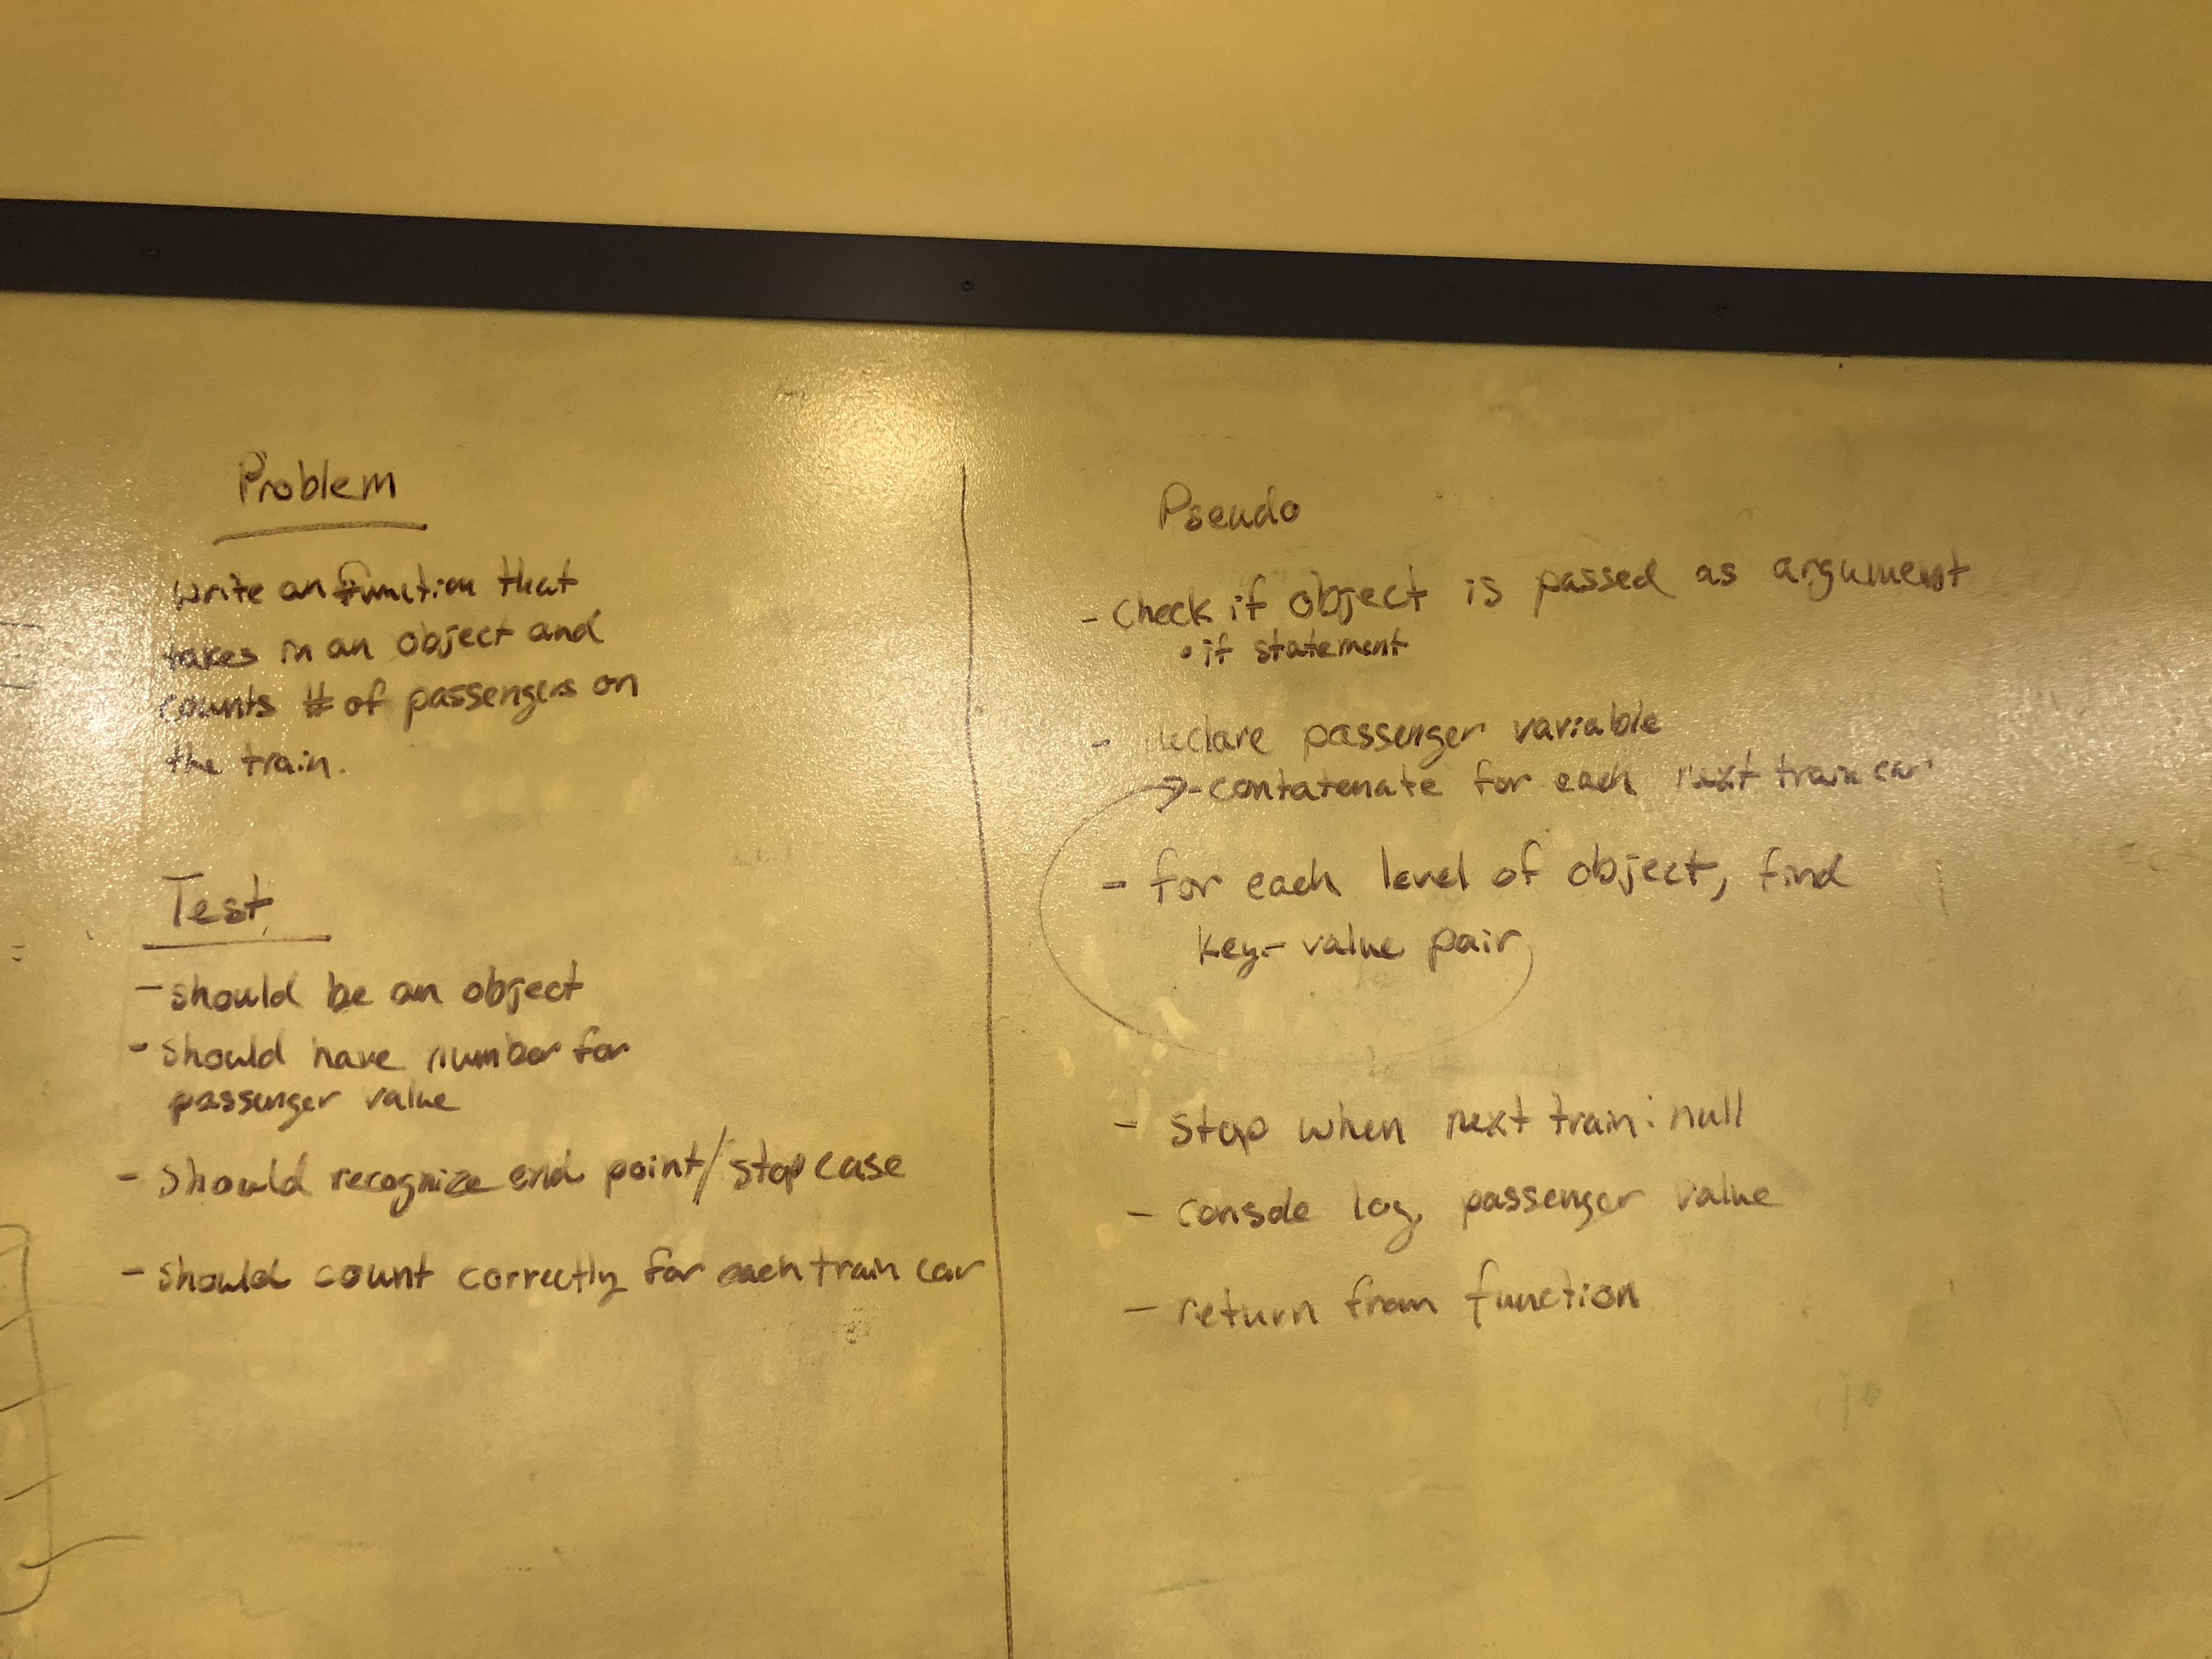 Problem
write an function that
takes in an object and
counts # of passengers on
the train.
Test
- should be an object
- should have number for
passenger value
- should recognize end point/stop case
- should count correctly for each train car
Pseudo
- Check if object is passed as argument
• if statement
- declare passenger variable
→ - contatenate for each next train car
- for each level of object, find
key-value pair
- stop when next train: null
- console log passenger value
- return from function